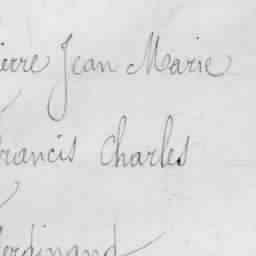 ierre Jean Marie
rancis Charles
erdinand